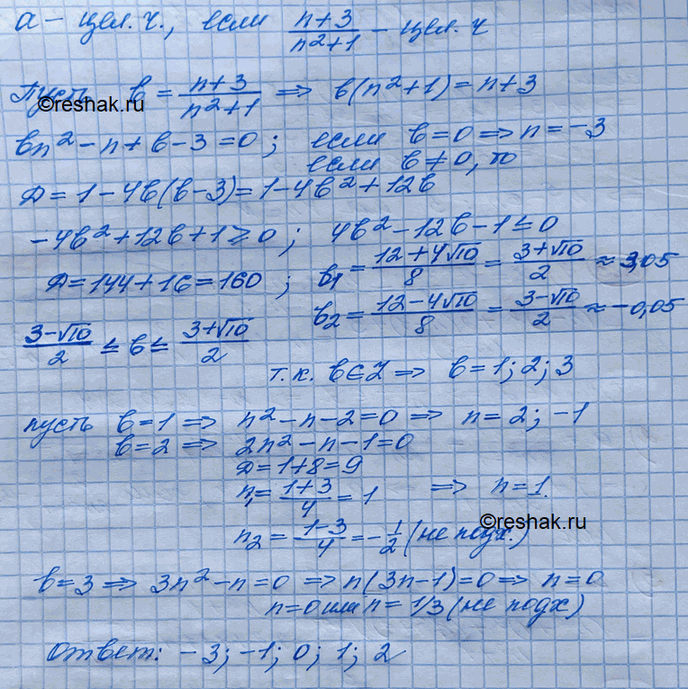 a - цел. ч., если \frac{n+3}{n²+1} - цел. ч
Пусть b = \frac{n+3}{n²+1} ⇒ b(n²+1) = n+3
©reshak.ru
bn² - n + b - 3 = 0; если b = 0 ⇒ n = -3
если b ≠ 0, то
D = 1 - 4b(b-3) = 1 - 4b² + 12b
-4b² + 12b + 1 ≥ 0; 4b² - 12b - 1 ≤ 0
D = 144 + 16 = 160; b₁ = \frac{12+4√10}{8} = \frac{3+√10}{2} ≈ 3,05
b₂ = \frac{12-4√10}{8} = \frac{3-√10}{2} ≈ -0,05
\frac{3-√10}{2} ≤ b ≤ \frac{3+√10}{2}
т.к. b ∈ Z ⇒ b = 1; 2; 3
пусть b = 1 ⇒ n² - n - 2 = 0 ⇒ n = 2; -1
b = 2 ⇒ 2n² - n - 1 = 0
D = 1 + 8 = 9
n₁ = \frac{1+3}{4} = 1 ⇒ n = 1.
©reshak.ru
n₂ = \frac{1-3}{4} = -\frac{1}{2} (не подх.)
b = 3 ⇒ 3n² - n = 0 ⇒ n(3n-1) = 0 ⇒ n = 0
n = 0 или n = 1/3 (не подх)
Ответ: -3; -1; 0; 1; 2